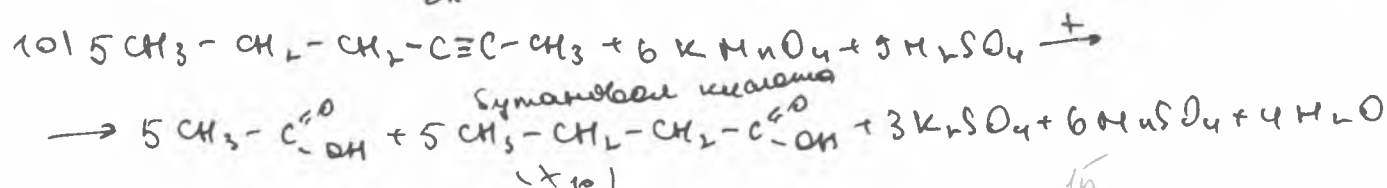 10) 5 CH₃ - CH₂ - CH₂ - C≡C - CH₃ + 6 KMnO₄ + 9 H₂SO₄ →
бутановая кислота
→ 5 CH₃ - C =O -OH + 5 CH₃ - CH₂ - CH₂ - C =O -OH + 3 K₂SO₄ + 6 MnSO₄ + 4 H₂O
(X₁₀)